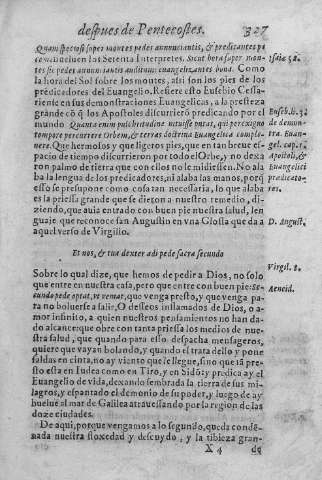 despues de Pentecostes. 327
Quam speciosi super montes pedes annunciantis, & predicantis pa
como buelven los Setenta Interpretes. Sicut hora super mon-
tes sic pedes annuntiantis auditum euangelizantes bona. Como
la hora del Sol sobre los montes, assi son los pies de los
predicadores del Euangelio. Refiere esto Eusebio Cessa-
riense en sus demonstraciones Euangelicas, a la presteza
grande cõ q̃ los Apostoles discurrierõ predicando por el
mundo
tempore percurrere Orbem, & terras doctrina Euangelica comple-
nere. Que hermosos y que ligeros pies, que en tan breue es-
pacio de tiempo discurrieron por todo el Orbe, y no dexa
ron palmo de tierra que con ellos no le midiessen. No ala
ba la lengua de los predicadores, ni alaba las manos, porq̃
esso se presupone como cosa tan necessaria, lo que alaba
es la priessa grande que se dieron a nuestro remedio, di-
ziendo, que auia entrado con buen pie nuestra salud, len
guaje que reconoce san Augustin en vna Glossa que da a
aquel verso de Virgilio.
Et nos, & tua dexter adi pede sacra secundo
Sobre lo qual dize, que hemos de pedir a Dios, no solo
que entre en nuestra casa, pero que entre con buen pie: Se-
cundo pede optat, vt veniat, que venga presto, y que venga pa-
ra no boluerse a salir. O desseos inflamados de Dios, o a-
mor infinito, a quien nuestros pensamientos no han da-
do alcance: que obre con tanta priessa los medios de nues-
tra salud, que quando para esso despacha mensageros,
quiere que vayan bolando, y quando el trata dello y pone
soldas en cinta, no ay viento que le llegue, sino que si a pre-
sto esta en Iudea como en Tiro, y en Sidõ: y predica ay el
Euangelio de vida, dexando sembrada la tierra de sus mi-
lagros, y espantado el demonio de su poder, y luego de ay
buelue al mar de Galilea atrauessando por la region de las
doze ciudades.
De aqui, porque vengamos a lo segundo, queda conde-
nada nuestra floxedad y descuydo, y la tibieza gran-
X 4 de
Isaie 52.
Euseb. li. 3.
de demons
tra. Euan-
gel. cap. 1.
Apostoli, &
Euangelici
predicato-
res.
D. August.
Virgil. 8.
Aeneid.